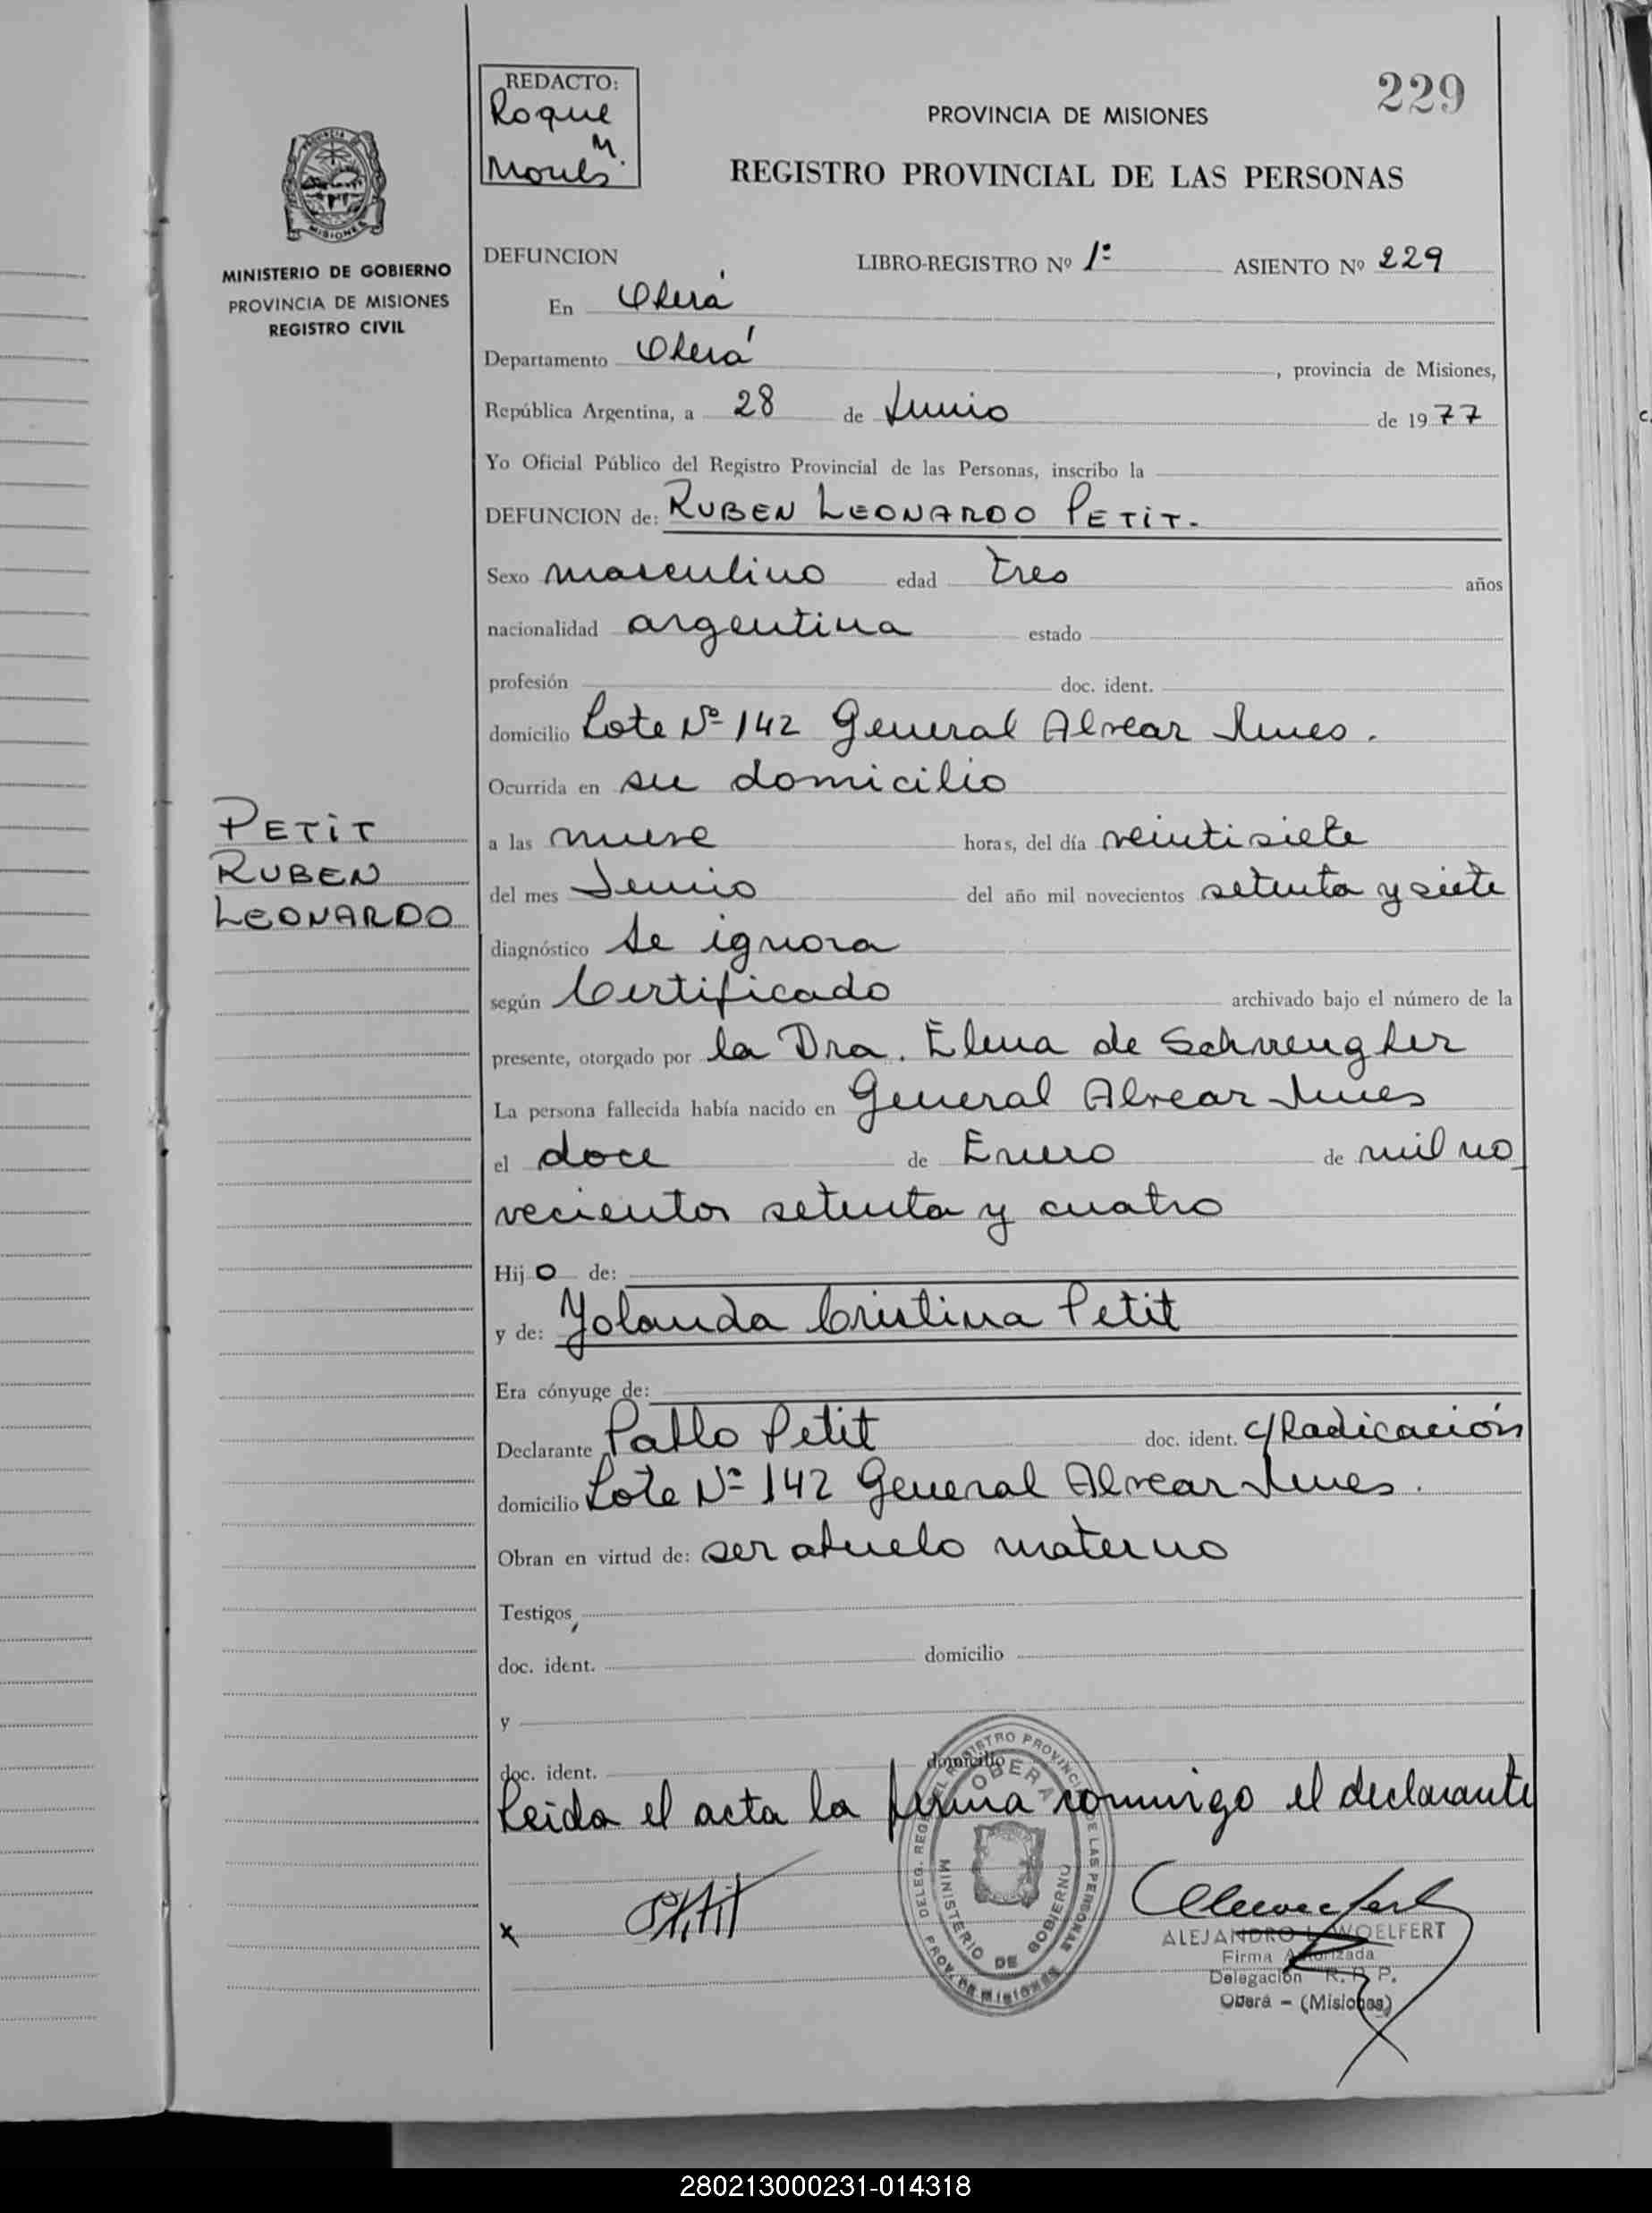 229
REDACTO:
Roque
M.
PROVINCIA DE MISIONES
REGISTRO PROVINCIAL DE LAS PERSONAS
MISIONES
MINISTERIO DE GOBIERNO
PROVINCIA DE MISIONES
REGISTRO CIVIL
DEFUNCION LIBRO-REGISTRO Nº 1º ASIENTO Nº 229
En Oberá
Departamento Oberá, provincia de Misiones,
República Argentina, a 28 de Junio de 1977
Yo Oficial Público del Registro Provincial de las Personas, inscribo la
DEFUNCION de: RUBEN LEONARDO PETIT.
Sexo masculino edad tres años
nacionalidad argentina estado
profesión doc. ident.
domicilio Lote Nº 142 General Alvear Mnes.
Ocurrida en su domicilio
a las nueve horas, del día veintisiete
del mes Junio del año mil novecientos setenta y siete
diagnóstico se ignora
según Certificado archivado bajo el número de la
presente, otorgado por la Dra. Elena de Schwengber
La persona fallecida había nacido en General Alvear Mnes
el doce de Enero de mil no
vecientos setenta y cuatro
Hijo de:
y de: Yolanda Cristina Petit
Era cónyuge de:
Declarante Pablo Petit doc. ident. c/Radicación
domicilio Lote Nº 142 General Alvear Mnes.
Obran en virtud de: ser abuelo materno
Testigos
doc. ident. domicilio
y
doc. ident. domicilio
Leida el acta la firma conmigo el declarante
PETIT
RUBEN
LEONARDO
x Petit
DELEG. REG. DEL REGISTRO PROVINCIAL DE LAS PERSONAS
OBERA
MINISTERIO DE GOBIERNO
PROV. DE MISIONES
ALEJANDRO L. WOELFERT
Firma Autorizada
Delegación R. P. P.
Oberá - (Misiones)
280213000231-014318